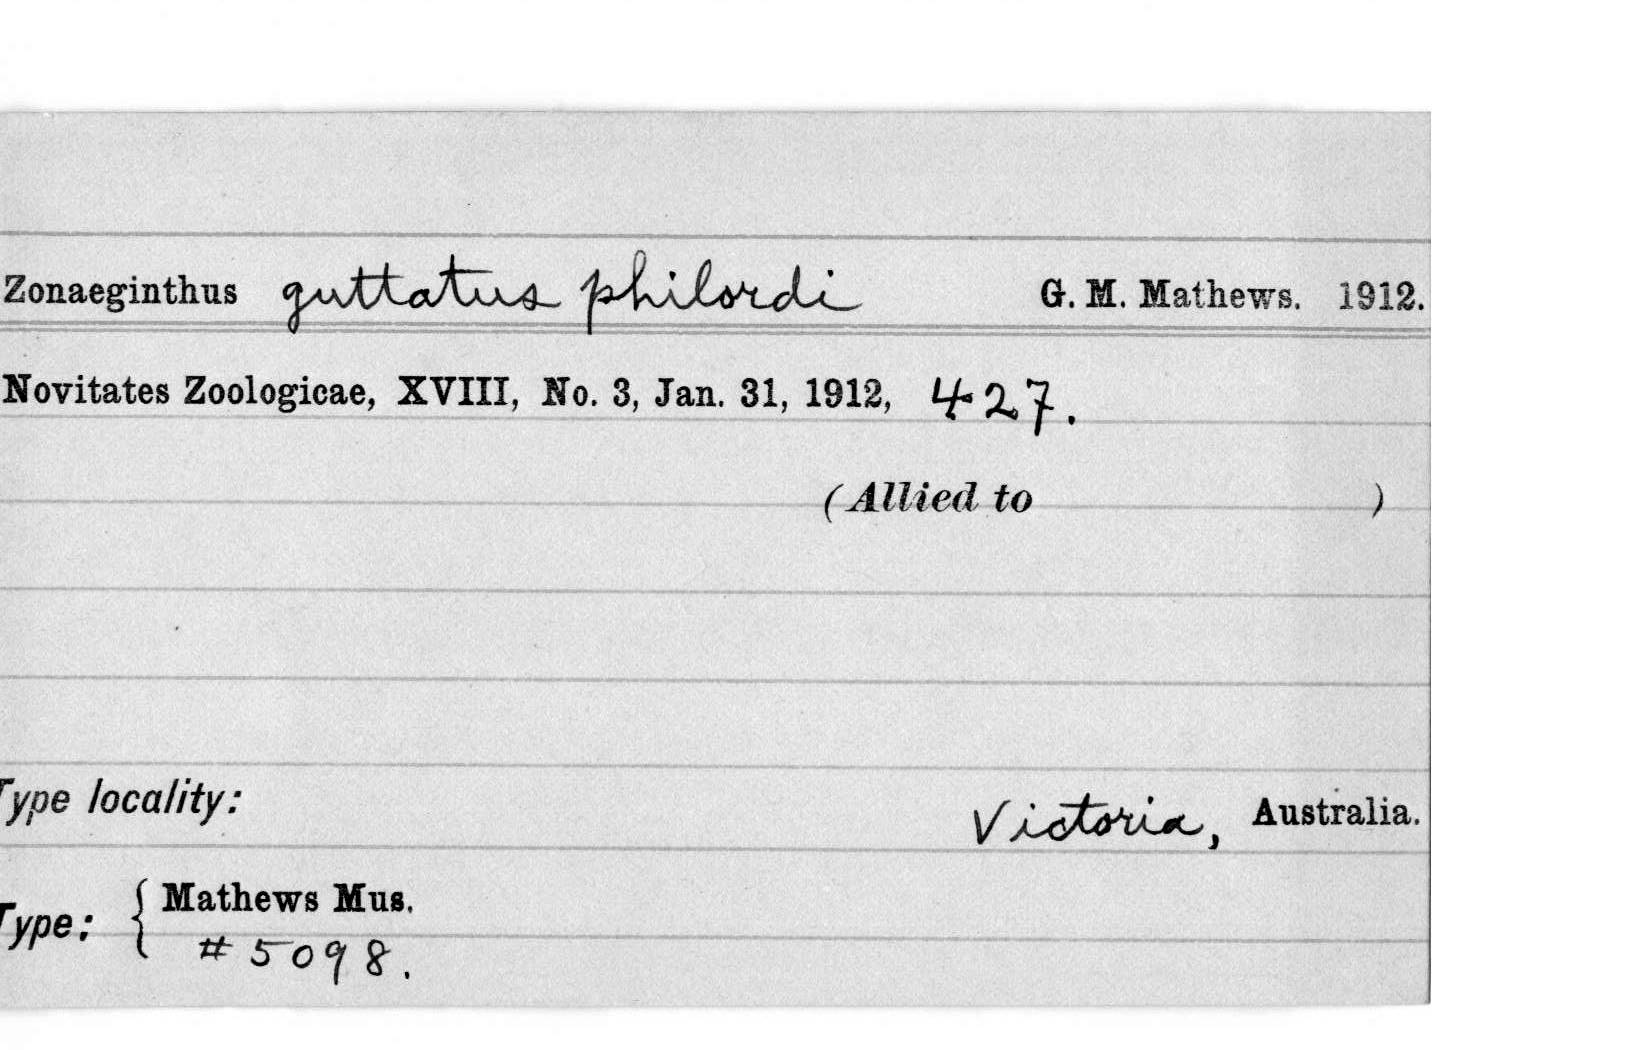 Zonaeginthus guttatus philordi G. M. Mathews. 1912.
Novitates Zoologicae, XVIII, No. 3, Jan. 31, 1912, 427.
(Allied to )
Type locality: Victoria, Australia.
Type: { Mathews Mus.
#5098.